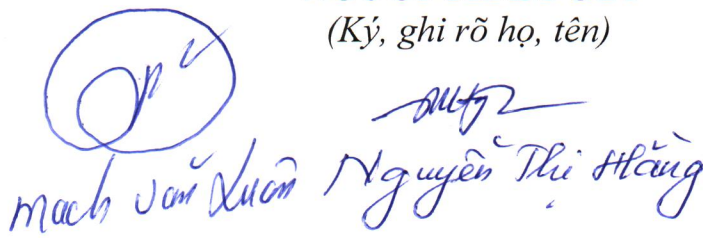 (Ký, ghi rõ họ, tên)
Mạch Văn Xuân Nguyễn Thị Hằng